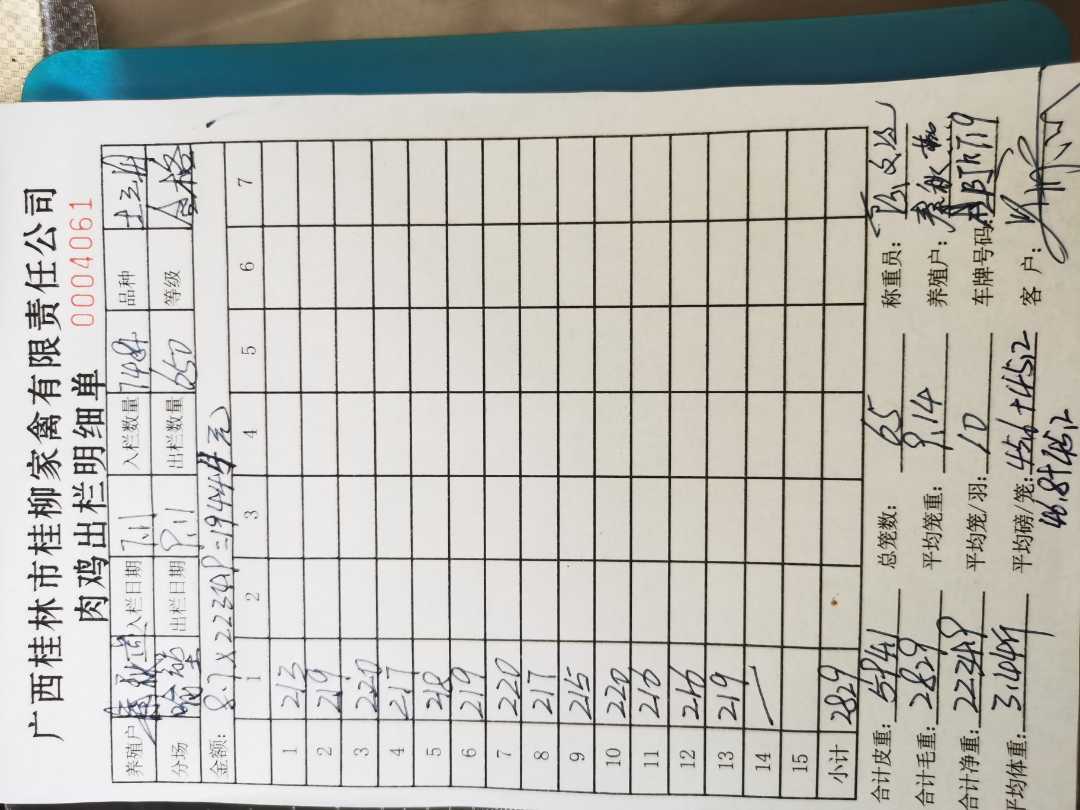 广西桂林市桂柳家禽有限责任公司
肉鸡出栏明细单 0004061
养殖户 入栏日期 7.11 入栏数量 7484 品种 土三
分场 出栏日期 9.11 出栏数量 650 等级 合格
金额: 8.7×2234.9=19444元
1 2 3 4 5 6 7
1 213
2 219
3 220
4 217
5 218
6 219
7 220
8 217
9 215
10 220
11 216
12 216
13 219
14
15
小计 2829
合计皮重: 594.1 总笼数: 65 称重员:
合计毛重: 2829 平均笼重: 9.14 养殖户:
合计净重: 2234.9 平均笼/羽: 10 车牌号码:
平均体重: 平均磅/笼: 45.6+45.2 客 户:
46.8+45.2